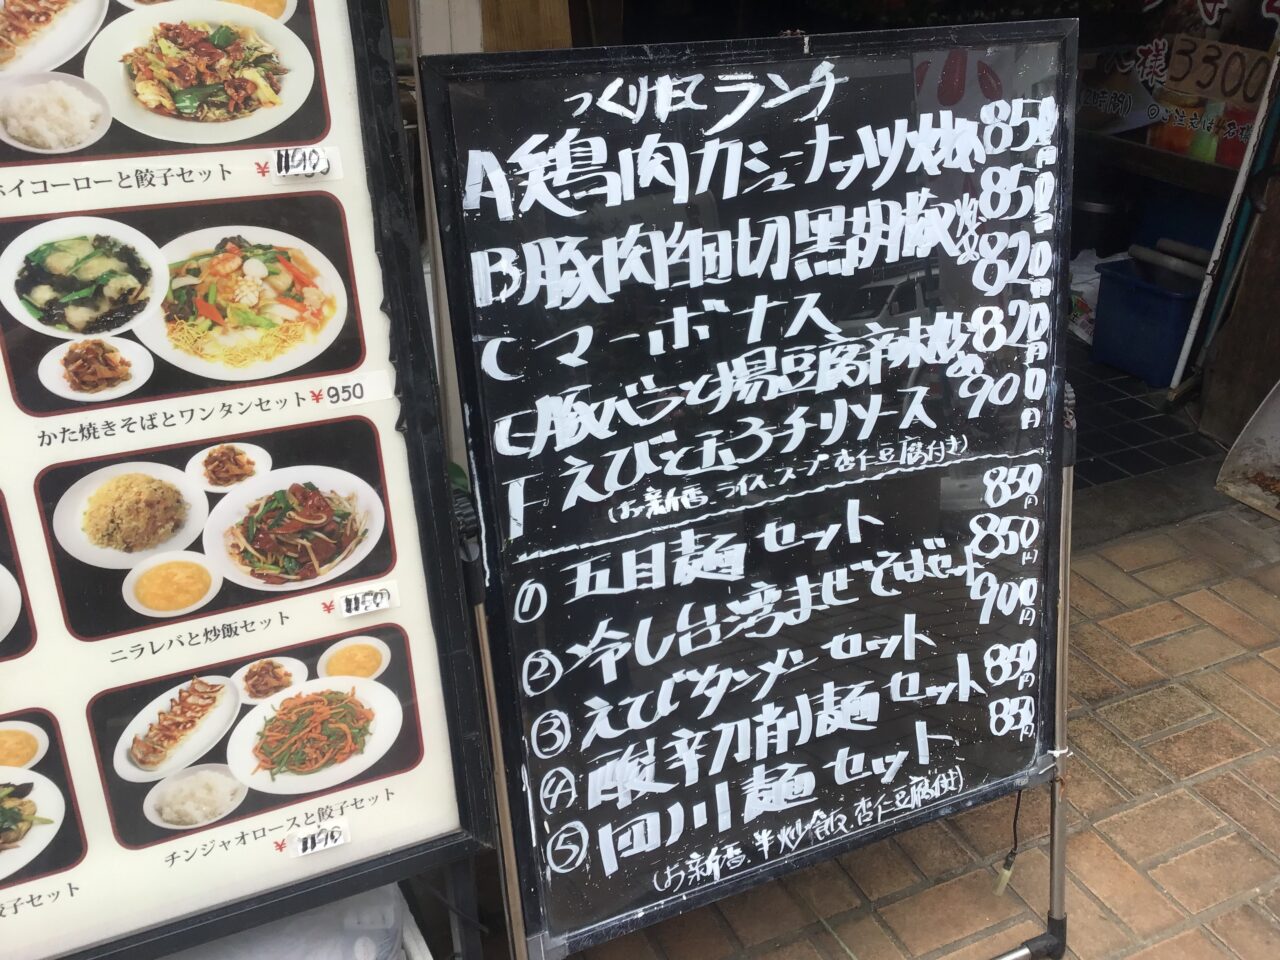 ホイコーローと餃子セット ¥
かた焼きそばとワンタンセット ¥950
ニラレバと炒飯セット
¥1150
チンジャオロースと餃子セット
¥
餃子セット
ランチ
A 鶏肉カシューナッツ炒め 850円
B 豚肉細切黒胡椒炒め 850円
C マーボナス 820円
E 豚バラと揚豆腐辛味炒め 820円
F えびと玉子チリソース 900円
(お新香、ライス、スープ 杏仁豆腐付き)
① 五目麺セット 850円
② 冷し台湾まぜそばセット 850円
③ えびタンメンセット 900円
④ 酸辛刀削麺セット 850円
⑤ 四川麺セット 850円
(お新香、半炒飯、杏仁豆腐付き)
様 3300
(2時間)
◎ご注文は